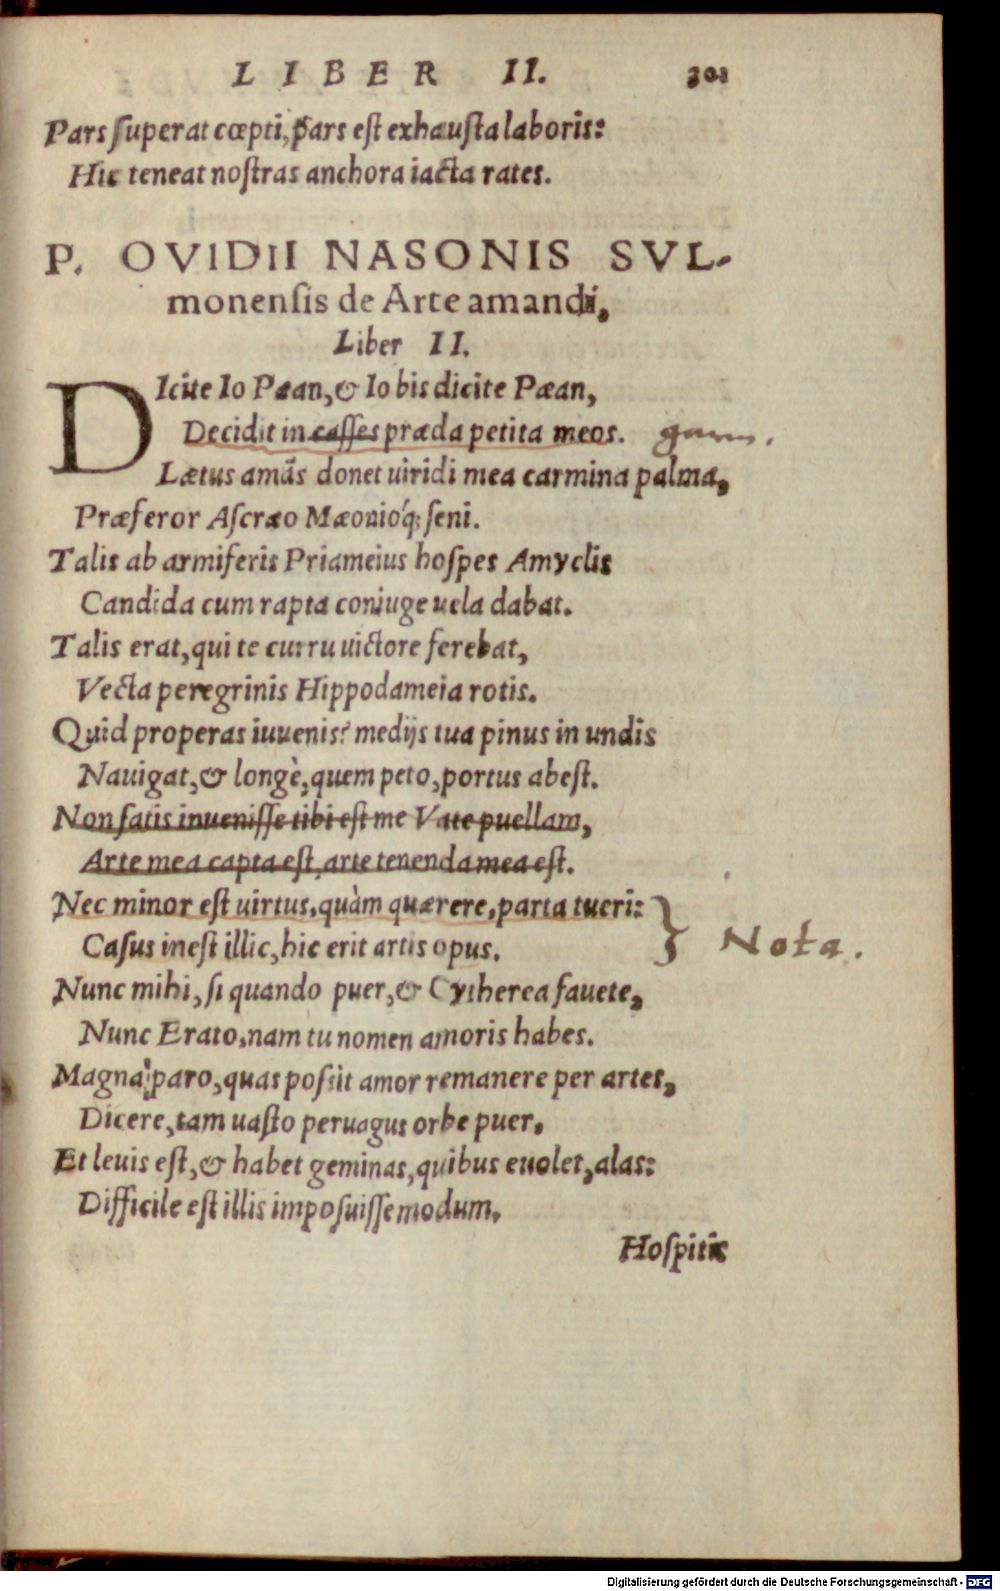 LIBER II. 301
Pars superat cœpti, pars est exhausta laboris:
Hic teneat nostras anchora iacta rates.
P. OVIDII NASONIS SVL-
monensis de Arte amandi,
Liber II.
DIcite Io Pæan, & Io bis dicite Pæan,
Decidit in casses præda petita meos.
Lætus amãs donet uiridi mea carmina palma,
Præferor Ascræo Mæonioq́; seni.
Talis ab armiferis Priameius hospes Amyclis
Candida cum rapta coniuge uela dabat.
Talis erat, qui te curru uictore ferebat,
Vecta peregrinis Hippodameia rotis.
Quid properas iuuenis? medijs tua pinus in undis
Nauigat, & longè, quem peto, portus abest.
Non satis inuenisse tibi est me Vate puellam,
Arte mea capta est, arte tenenda mea est.
Nec minor est uirtus, quàm quærere, parta tueri:
Casus inest illic, hic erit artis opus.
Nota.
Nunc mihi, si quando puer, & Cytherea fauete,
Nunc Erato, nam tu nomen amoris habes.
Magna paro, quas possit amor remanere per artes,
Dicere, tam uasto peruagus orbe puer.
Et leuis est, & habet geminas, quibus euolet, alas:
Difficile est illis imposuisse modum.
Hospitis
Digitalisierung gefördert durch die Deutsche Forschungsgemeinschaft - DFG